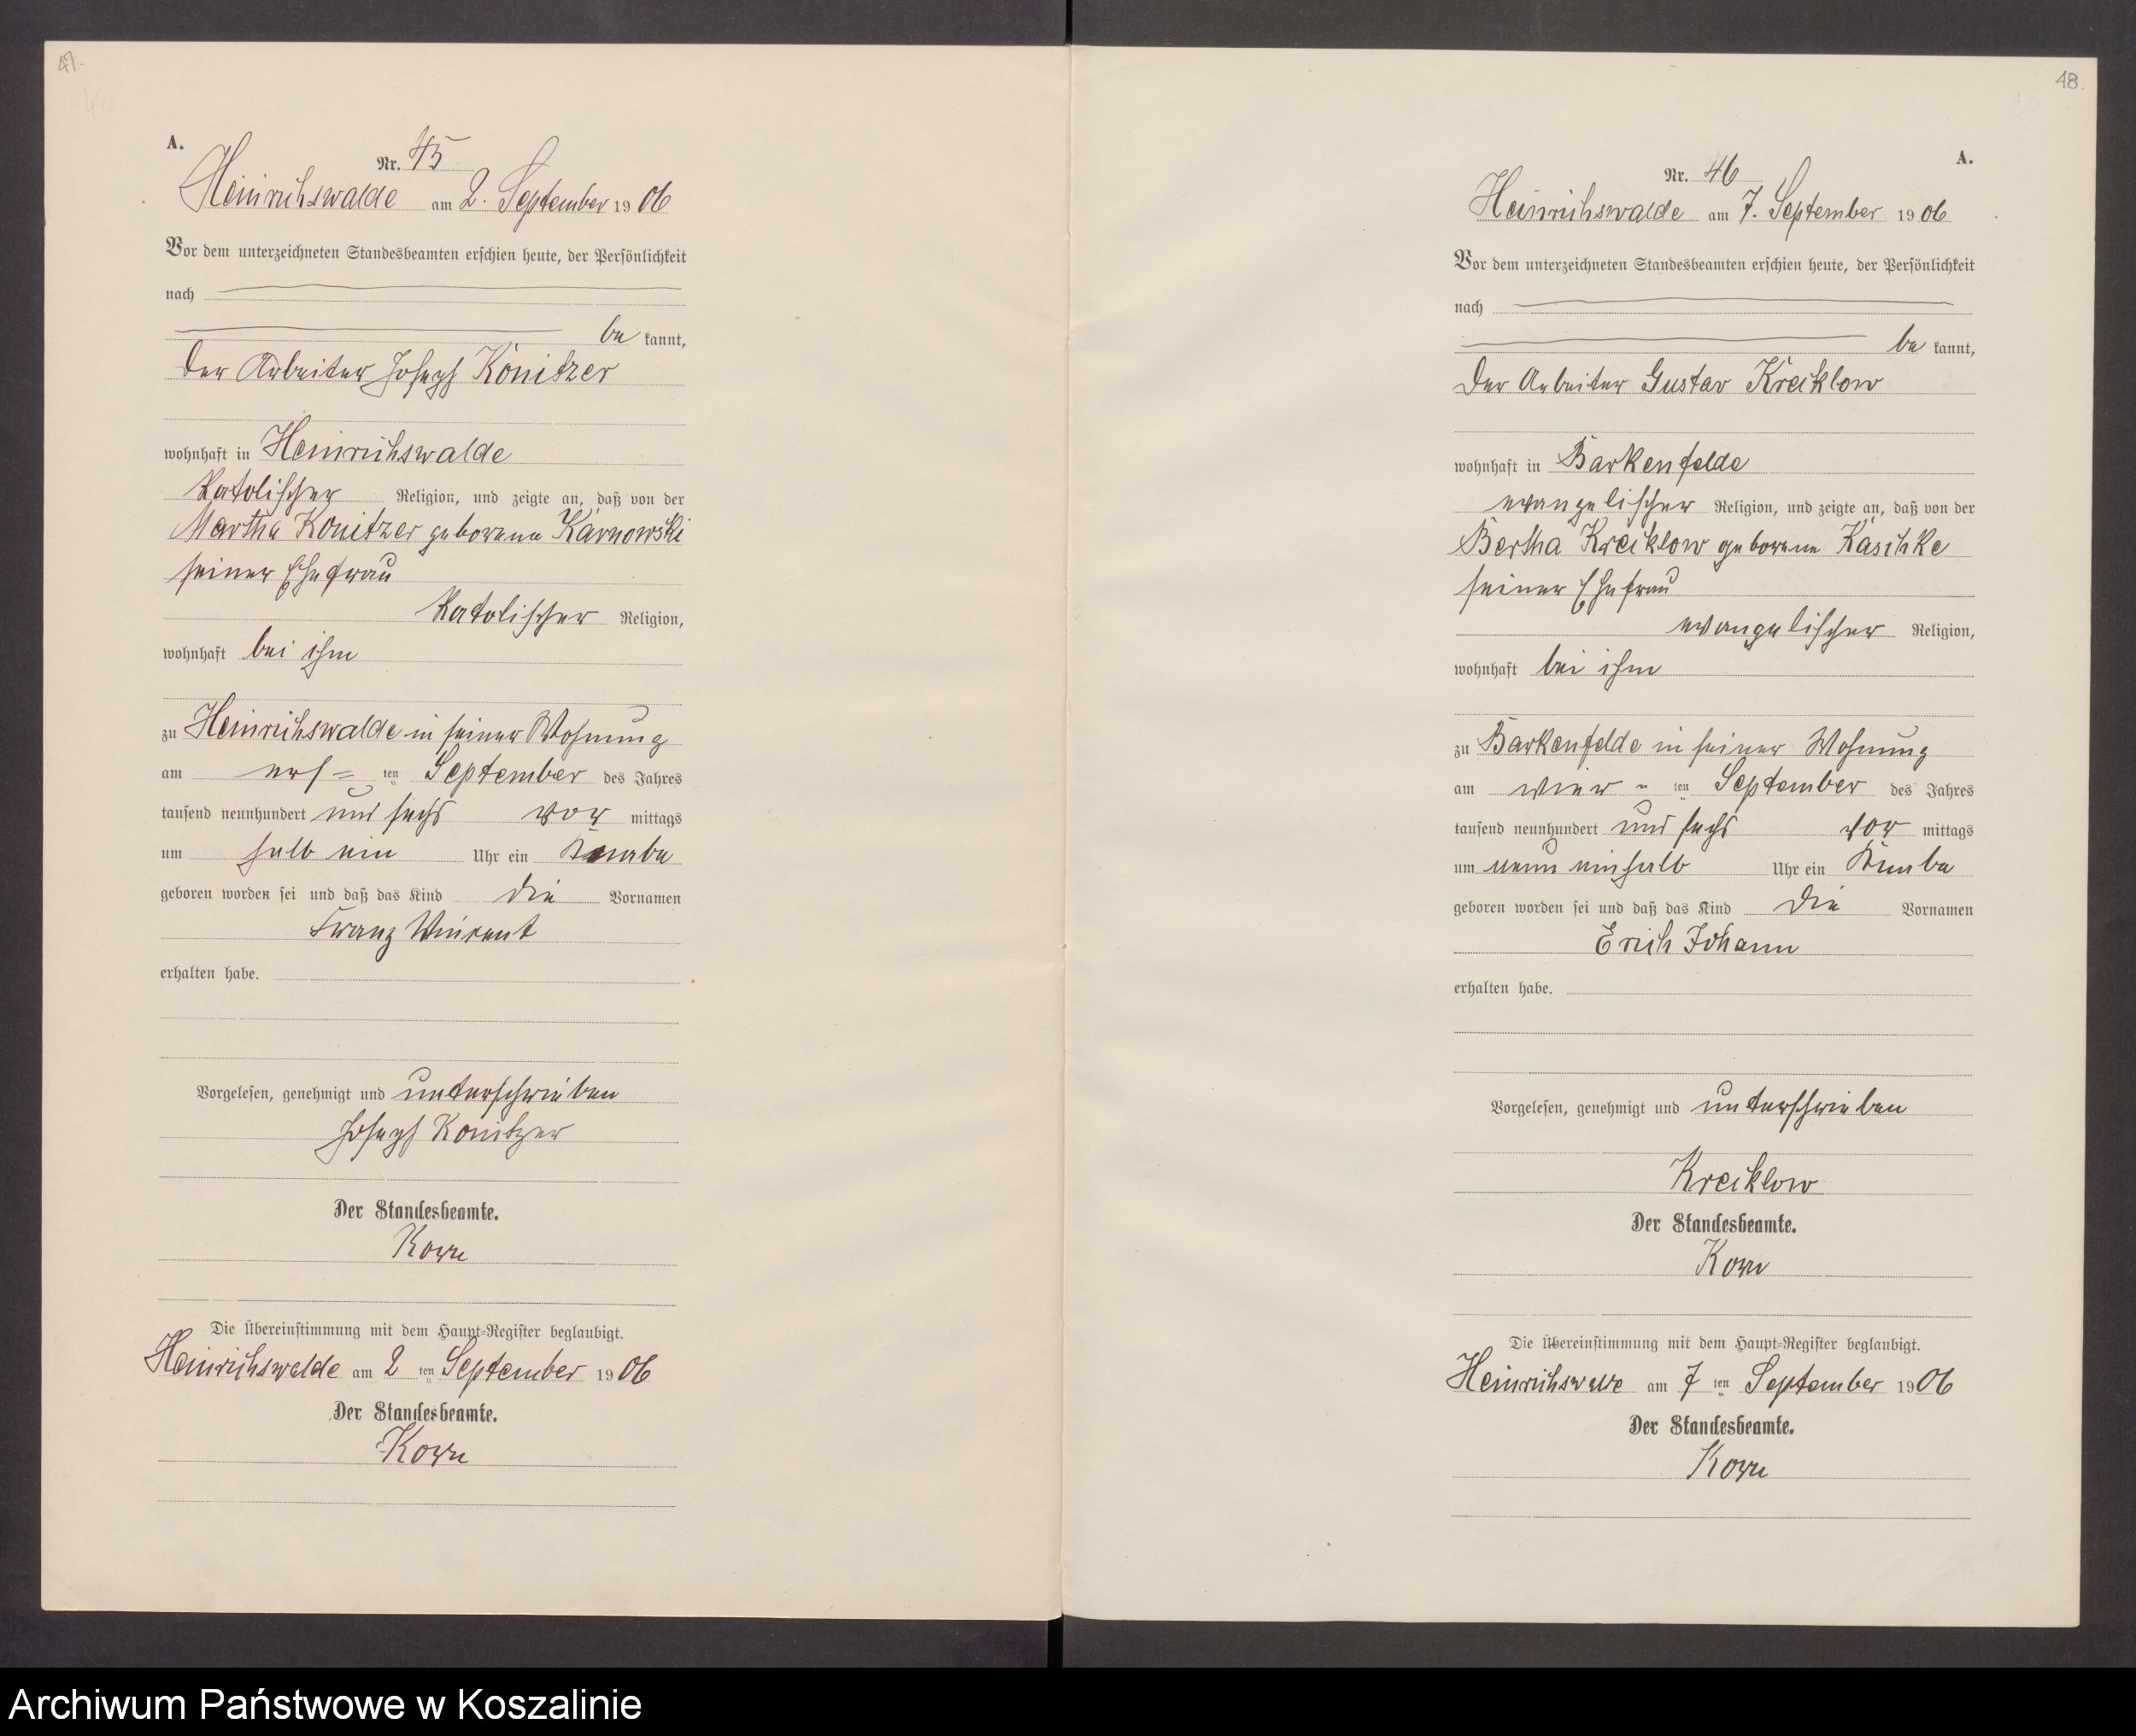 47.
A.
Nr. 45
Heinrichswalde am 2. September 1906
Vor dem unterzeichneten Standesbeamten erschien heute, der Persönlichkeit
nach
be kannt,
der Arbeiter Joseph Konitzer
wohnhaft in Heinrichswalde
katolischer Religion, und zeigte an, daß von der
Martha Konitzer geborene Karnowski
seiner Ehefrau
katolischer Religion,
wohnhaft bei ihm
zu Heinrichswalde in seiner Wohnung
am ers= ten September des Jahres
tausend neunhundert und sechs vor mittags
um halb ein Uhr ein Knabe
geboren worden sei und daß das Kind die Vornamen
Franz Vinzent
erhalten habe.
Vorgelesen, genehmigt und unterschrieben
Joseph Konitzer
Der Standesbeamte.
Korn
Die Übereinstimmung mit dem Haupt=Register beglaubigt.
Heinrichswalde am 2 ten September 1906
Der Standesbeamte.
Korn
48.
A.
Nr. 46
Heinrichswalde am 7. September 1906
Vor dem unterzeichneten Standesbeamten erschien heute, der Persönlichkeit
nach
be kannt,
der Arbeiter Gustav Kreiklow
wohnhaft in Barkenfelde
evangelischer Religion, und zeigte an, daß von der
Bertha Kreiklow geborene Kaschke
seiner Ehefrau
evangelischer Religion,
wohnhaft bei ihm
zu Barkenfelde in seiner Wohnung
am vier = ten September des Jahres
tausend neunhundert und sechs vor mittags
um neun einhalb Uhr ein Knabe
geboren worden sei und daß das Kind die Vornamen
Erich Johann
erhalten habe.
Vorgelesen, genehmigt und unterschrieben
Kreiklow
Der Standesbeamte.
Korn
Die Übereinstimmung mit dem Haupt=Register beglaubigt.
Heinrichswalde am 7 ten September 1906
Der Standesbeamte.
Korn
Archiwum Państwowe w Koszalinie